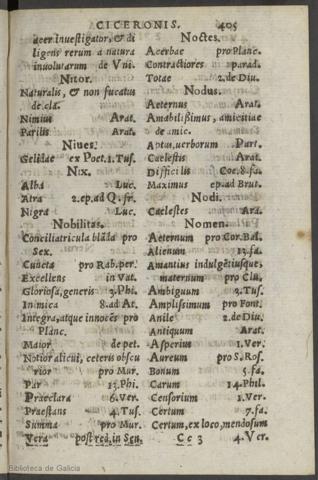 CICERONIS. 405
acer Inuestigator, & di
ligens rerum a natura
inuolutarum de Vni.
Nitor.
Naturalis, & non fucatus
de.cla.
Nimius Arat.
Parilis Arat.
Niues.
Gelidae ex Poet.1.Tus.
Nix.
Alba Luc.
Atra 2.ep.ad Q.fr.
Nigra Luc.
Nobilitas.
Conciliatricula blāda pro
Sex.
Cuncta pro Rab.per.
Excellens in Vat.
Gloriosa, generis 2.Phi.
Inimica 8.ad At.
Integra, atque innocēs pro
Planc.
Maior de pet.
Notior alicui, ceteris obscu
rior pro Mur.
Par 13.Phi.
Praeclara 6.Ver.
Praestans 4.Tus.
Summa pro Mur.
Vera post red. in Sen.
Noctes.
Acerbae pro Planc.
Contractiores parad.
Totae 2.de Diu.
Nodus.
Aeternus Arat.
Amabilissimus, amicitiae
de amic.
Aptus, uerborum Part.
Caelestis Arat.
Difficilis Coe.8.fa.
Maximus ep.ad Brut.
Nodi.
Caelestes Ara.
Nomen.
Aeternum pro Cor.Bal.
Alienum 13.fa.
Amantius indulgētiusque,
maternum pro Clu,
Ambiguum 3.Tus.
Amplissimum pro Font.
Anile 2.de Diu.
Antiquum Arat.
Asperius 1.Ver.
Aureum pro S.Ros.
Bonum 5.fa.
Carum 14.Phil.
Censorium 1.Ver.
Certum 7.fa.
Certum, ex loco, mendosum
Cc 3 4.Ver.
Biblioteca de Galicia